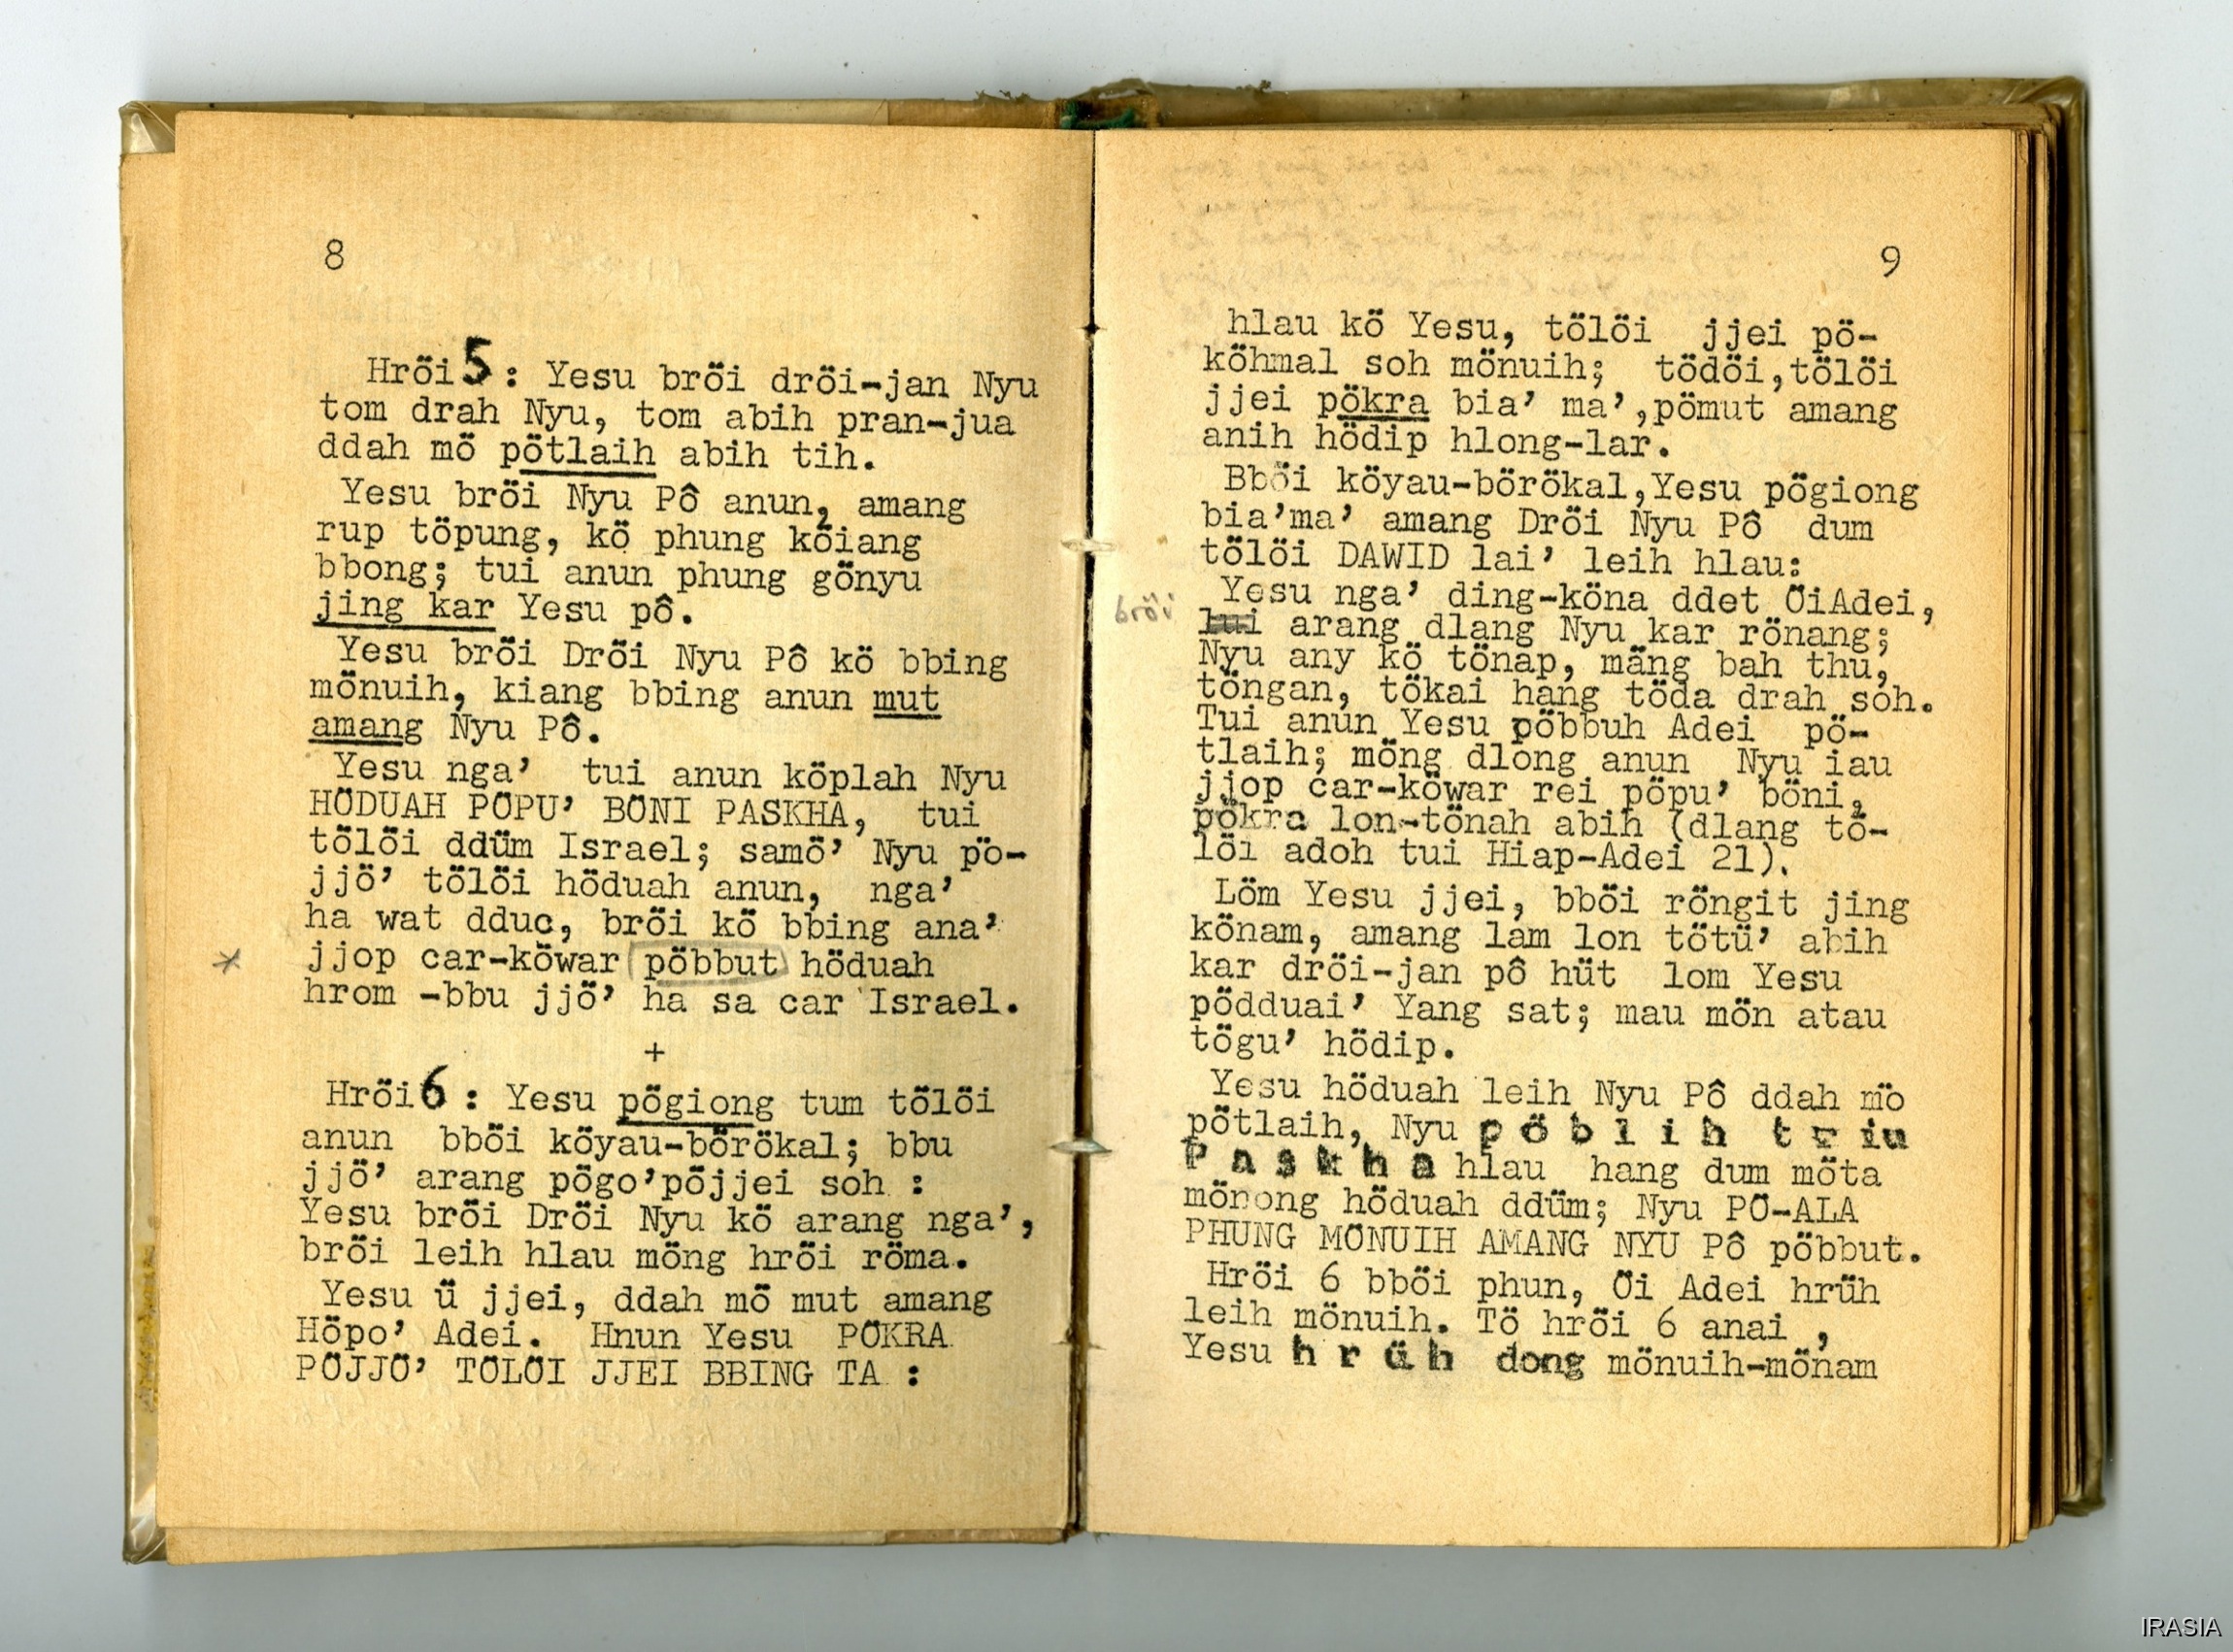 8
Hrŏ̈i 5 : Yesu brŏ̈i drŏ̈i-jan Nyu
tom drah Nyu, tom abih pran-jua
ddah mŏ̈ pŏ̈tlaih abih tih.
Yesu brŏ̈i Nyu Pô anun, amang
rup töpung, kŏ̈ phung kŏ̈iang
bbong; tui anun phung gŏ̈nyu
jing kar Yesu pô.
Yesu brŏ̈i Drŏ̈i Nyu Pô kŏ̈ bbing
mŏ̈nuih, kiang bbing anun mut
amang Nyu Pô.
Yesu nga' tui anun köplah Nyu
HÖDUAH PÖPU' BÖNI PASKHA, tui
tŏ̈lŏ̈i ddüm Israel; samŏ̈' Nyu pö-
jjŏ̈' tŏ̈lŏ̈i höduah anun, nga'
ha wat dduc, brŏ̈i kŏ̈ bbing ana'
jjop car-köwar pöbbut höduah
hrom -bbu jjŏ̈' ha sa car Israel.
+
Hrŏ̈i 6 : Yesu pögiong tum tŏ̈lŏ̈i
anun bbŏ̈i köyau-börökal; bbu
jjŏ̈' arang pögo'pöjjei soh :
Yesu brŏ̈i Drŏ̈i Nyu kŏ̈ arang nga',
brŏ̈i leih hlau mŏ̈ng hrŏ̈i röma.
Yesu ü̆ jjei, ddah mŏ̈ mut amang
Höpo' Adei. Hnun Yesu PÖKRA
PÖJJÖ' TÖLÖI JJEI BBING TA :
9
hlau kŏ̈ Yesu, tŏ̈lŏ̈i jjei pö-
köhmal soh mönuih; tödŏ̈i,tŏ̈lŏ̈i
jjei pökra bia' ma',pömut amang
anih hödip hlong-lar.
Bbŏ̈i köyau-börökal,Yesu pögiong
bia'ma' amang Drŏ̈i Nyu Pô dum
tŏ̈lŏ̈i DAWID lai' leih hlau:
Yesu nga' ding-köna ddet ÖiAdei,
brŏ̈i arang dlang Nyu kar rönang;
Nyu any kŏ̈ tönap, mŏ̈ng bah thu,
töngan, tökai hang töda drah soh.
Tui anun Yesu pöbbuh Adei pö-
tlaih; mŏ̈ng dlong anun Nyu iau
jjop car-köwar rei pöpu' böni,
pökra lon-tönah abih (dlang tŏ̈-
lŏ̈i adoh tui Hiap-Adei 21).
Löm Yesu jjei, bbŏ̈i röngit jing
könam, amang lam lon tötü' abih
kar drŏ̈i-jan pô hüt lom Yesu
pödduai' Yang sat; mau mŏ̈n atau
tögu' hödip.
Yesu höduah leih Nyu Pô ddah mö
pŏ̈tlaih, Nyu p ö b l i h t r iu
P a s k h a hlau hang dum möta
mönong höduah ddüm; Nyu PÖ-ALA
PHUNG MÖNUIH AMANG NYU Pô pöbbut.
Hrŏ̈i 6 bbŏ̈i phun, Öi Adei hrüh
leih mönuih. Tŏ̈ hrŏ̈i 6 anai ,
Yesu h r ü h dong mönuih-mönam
IRASIA